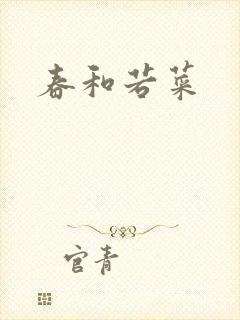 春和若菜
官青